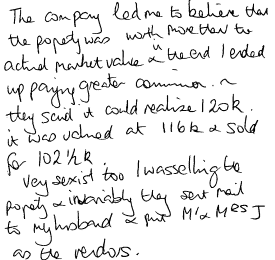 The company led me to believe that
the propety was worth more than the
actual market value & in the end I ended
up paying greater common. ~
they said it could realise 120k.
it was valued at 116k & sold
for 102½k.
Very sexist too I was selling the
propety & invariably they sent mail
to my husband & put Mr & Mrs J
as the vendors.